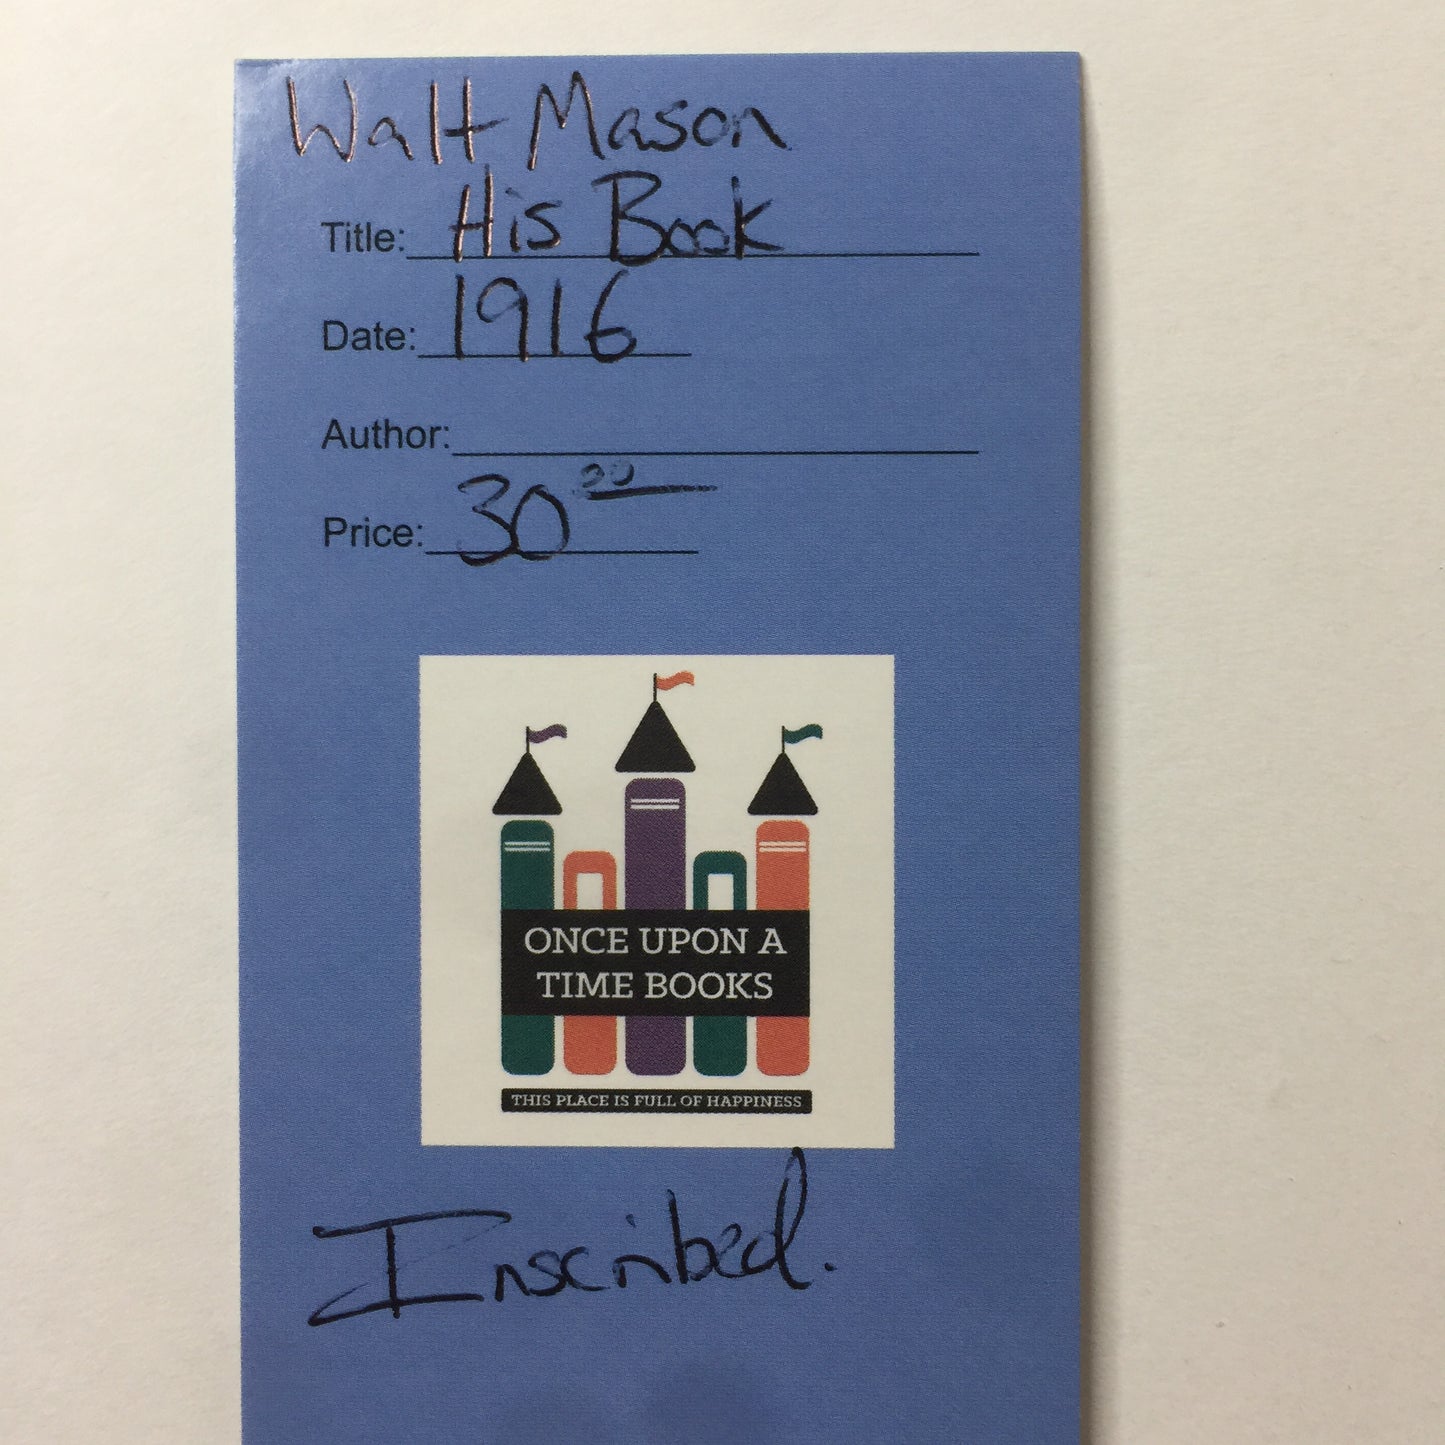 Walt Mason
Title: His Book
Date: 1916
Author:
Price: 30 00
ONCE UPON A
TIME BOOKS
THIS PLACE IS FULL OF HAPPINESS
Inscribed.